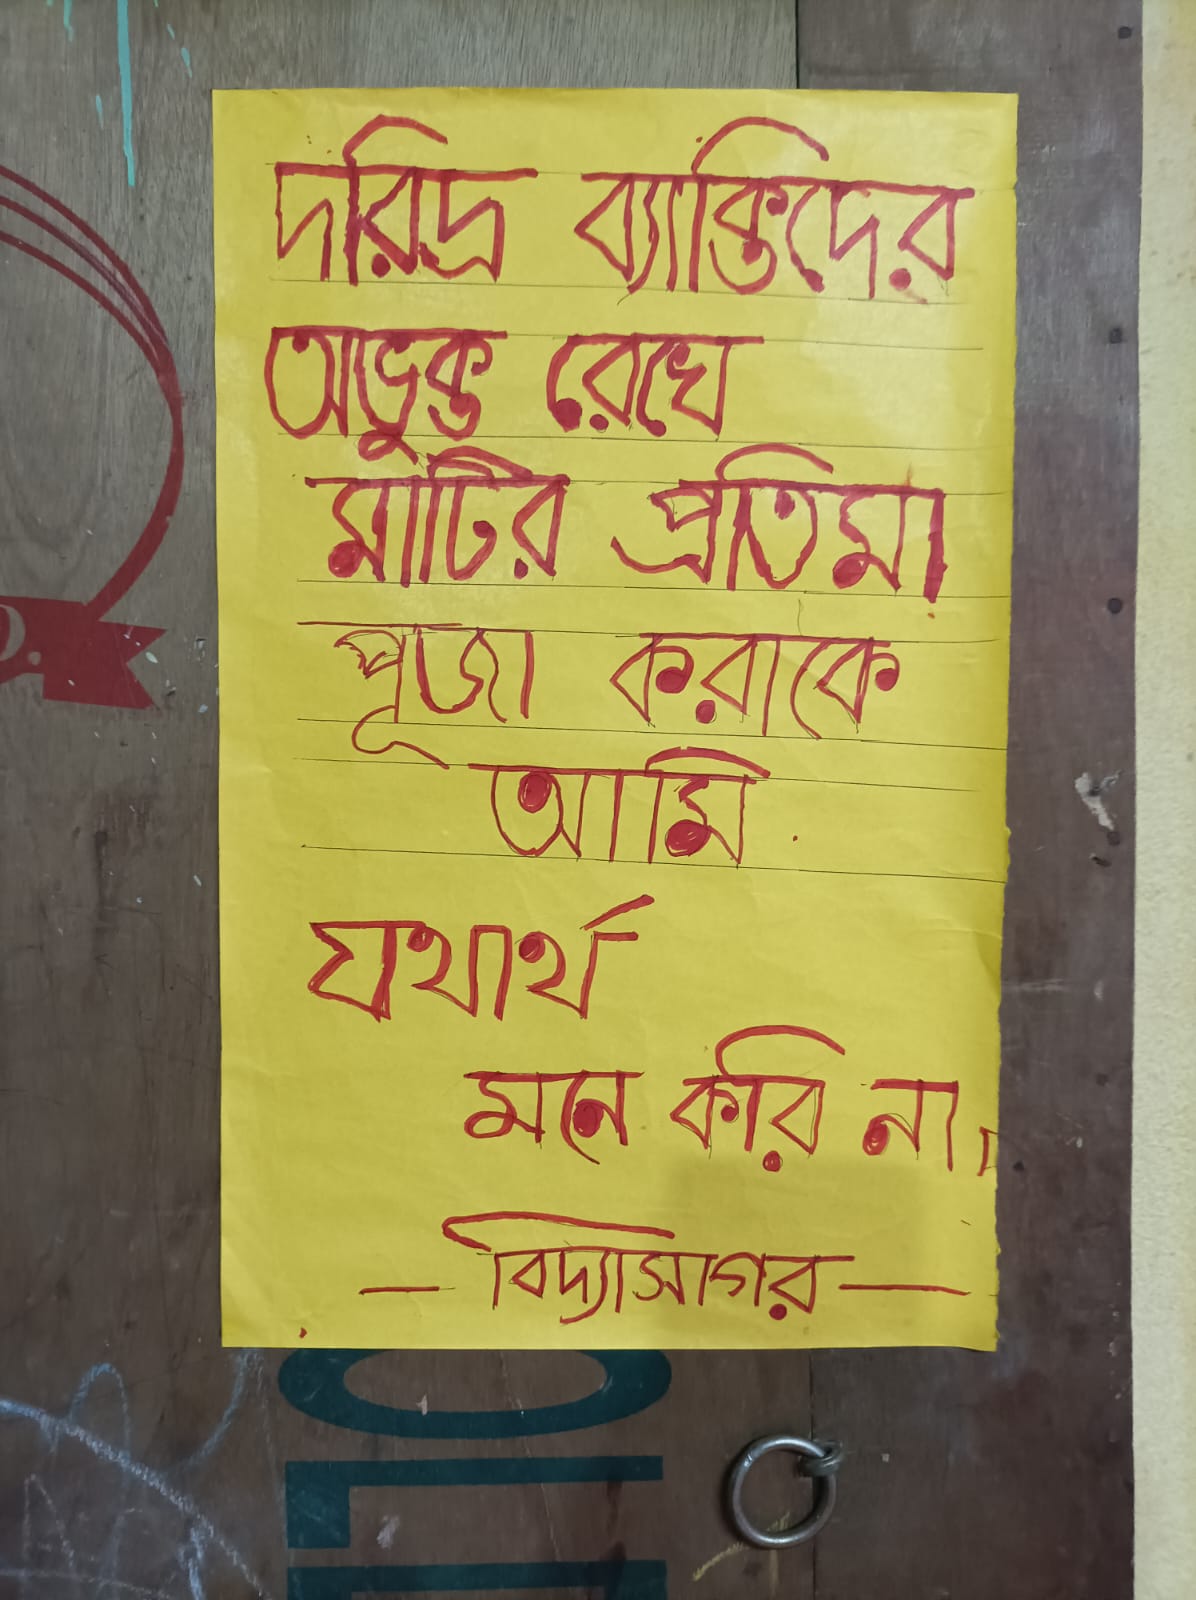 দরিদ্র ব্যাক্তিদের
অভুক্ত রেখে
মাটির প্রতিমা
পূজা করাকে
আমি
যথার্থ
মনে করি না।
— বিদ্যাসাগর —